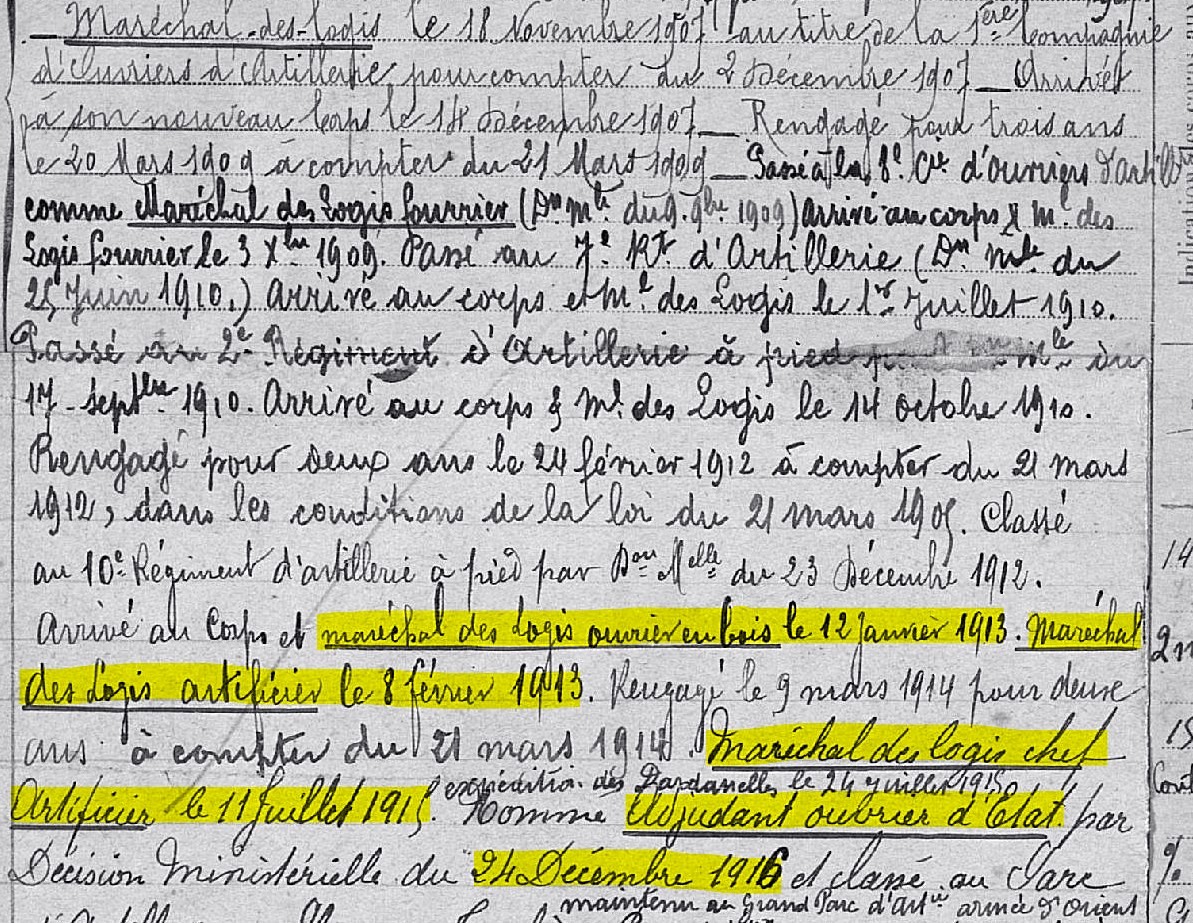 Maréchal-des-logis le 18 Novembre 1907 au titre de la 1ère Compagnie
d'Ouvriers d'Artillerie pour compter du 2 Décembre 1907 _ Arrivé
à son nouveau Corps le 14 Décembre 1907 _ Rengagé pour trois ans
le 20 Mars 1909 à compter du 21 Mars 1909 _ Passé à la 8e Cie d'ouvriers d'Artill
comme Maréchal des Logis fourrier (Don Mle du 9 9bre 1909) arrivé au corps & Ml des
Logis fourrier le 3 Xbre 1909. Passé au 7e Rt d'Artillerie (Don Mle du
25 Juin 1910.) Arrivé au corps et Ml des Logis le 1er Juillet 1910.
Passé au 2e Régiment d'Artillerie à pied Mle du
17 septbre 1910. Arrivé au corps & Ml des Logis le 14 octobre 1910.
Rengagé pour deux ans le 24 février 1912 à compter du 21 mars
1912, dans les conditions de la loi du 21 mars 1905. Classé
au 10e Régiment d'artillerie à pied par Don Melle du 23 Décembre 1912.
14
Arrivé au Corps et maréchal des Logis ouvrier en bois le 12 janvier 1913. Maréchal
des Logis artificier le 8 février 1913. Rengagé le 9 mars 1914 pour deux
ans à compter du 21 mars 1914. Maréchal des logis chef
expédition des Dardanelles le 24 juillet 1915
Artificier le 11 Juillet 1915. Nommé Adjudant ouvrier d'Etat par
Décision Ministérielle du 24 Décembre 1916 et classé au Parc
maintenu au Grand Parc d'Artie armée d'Orient